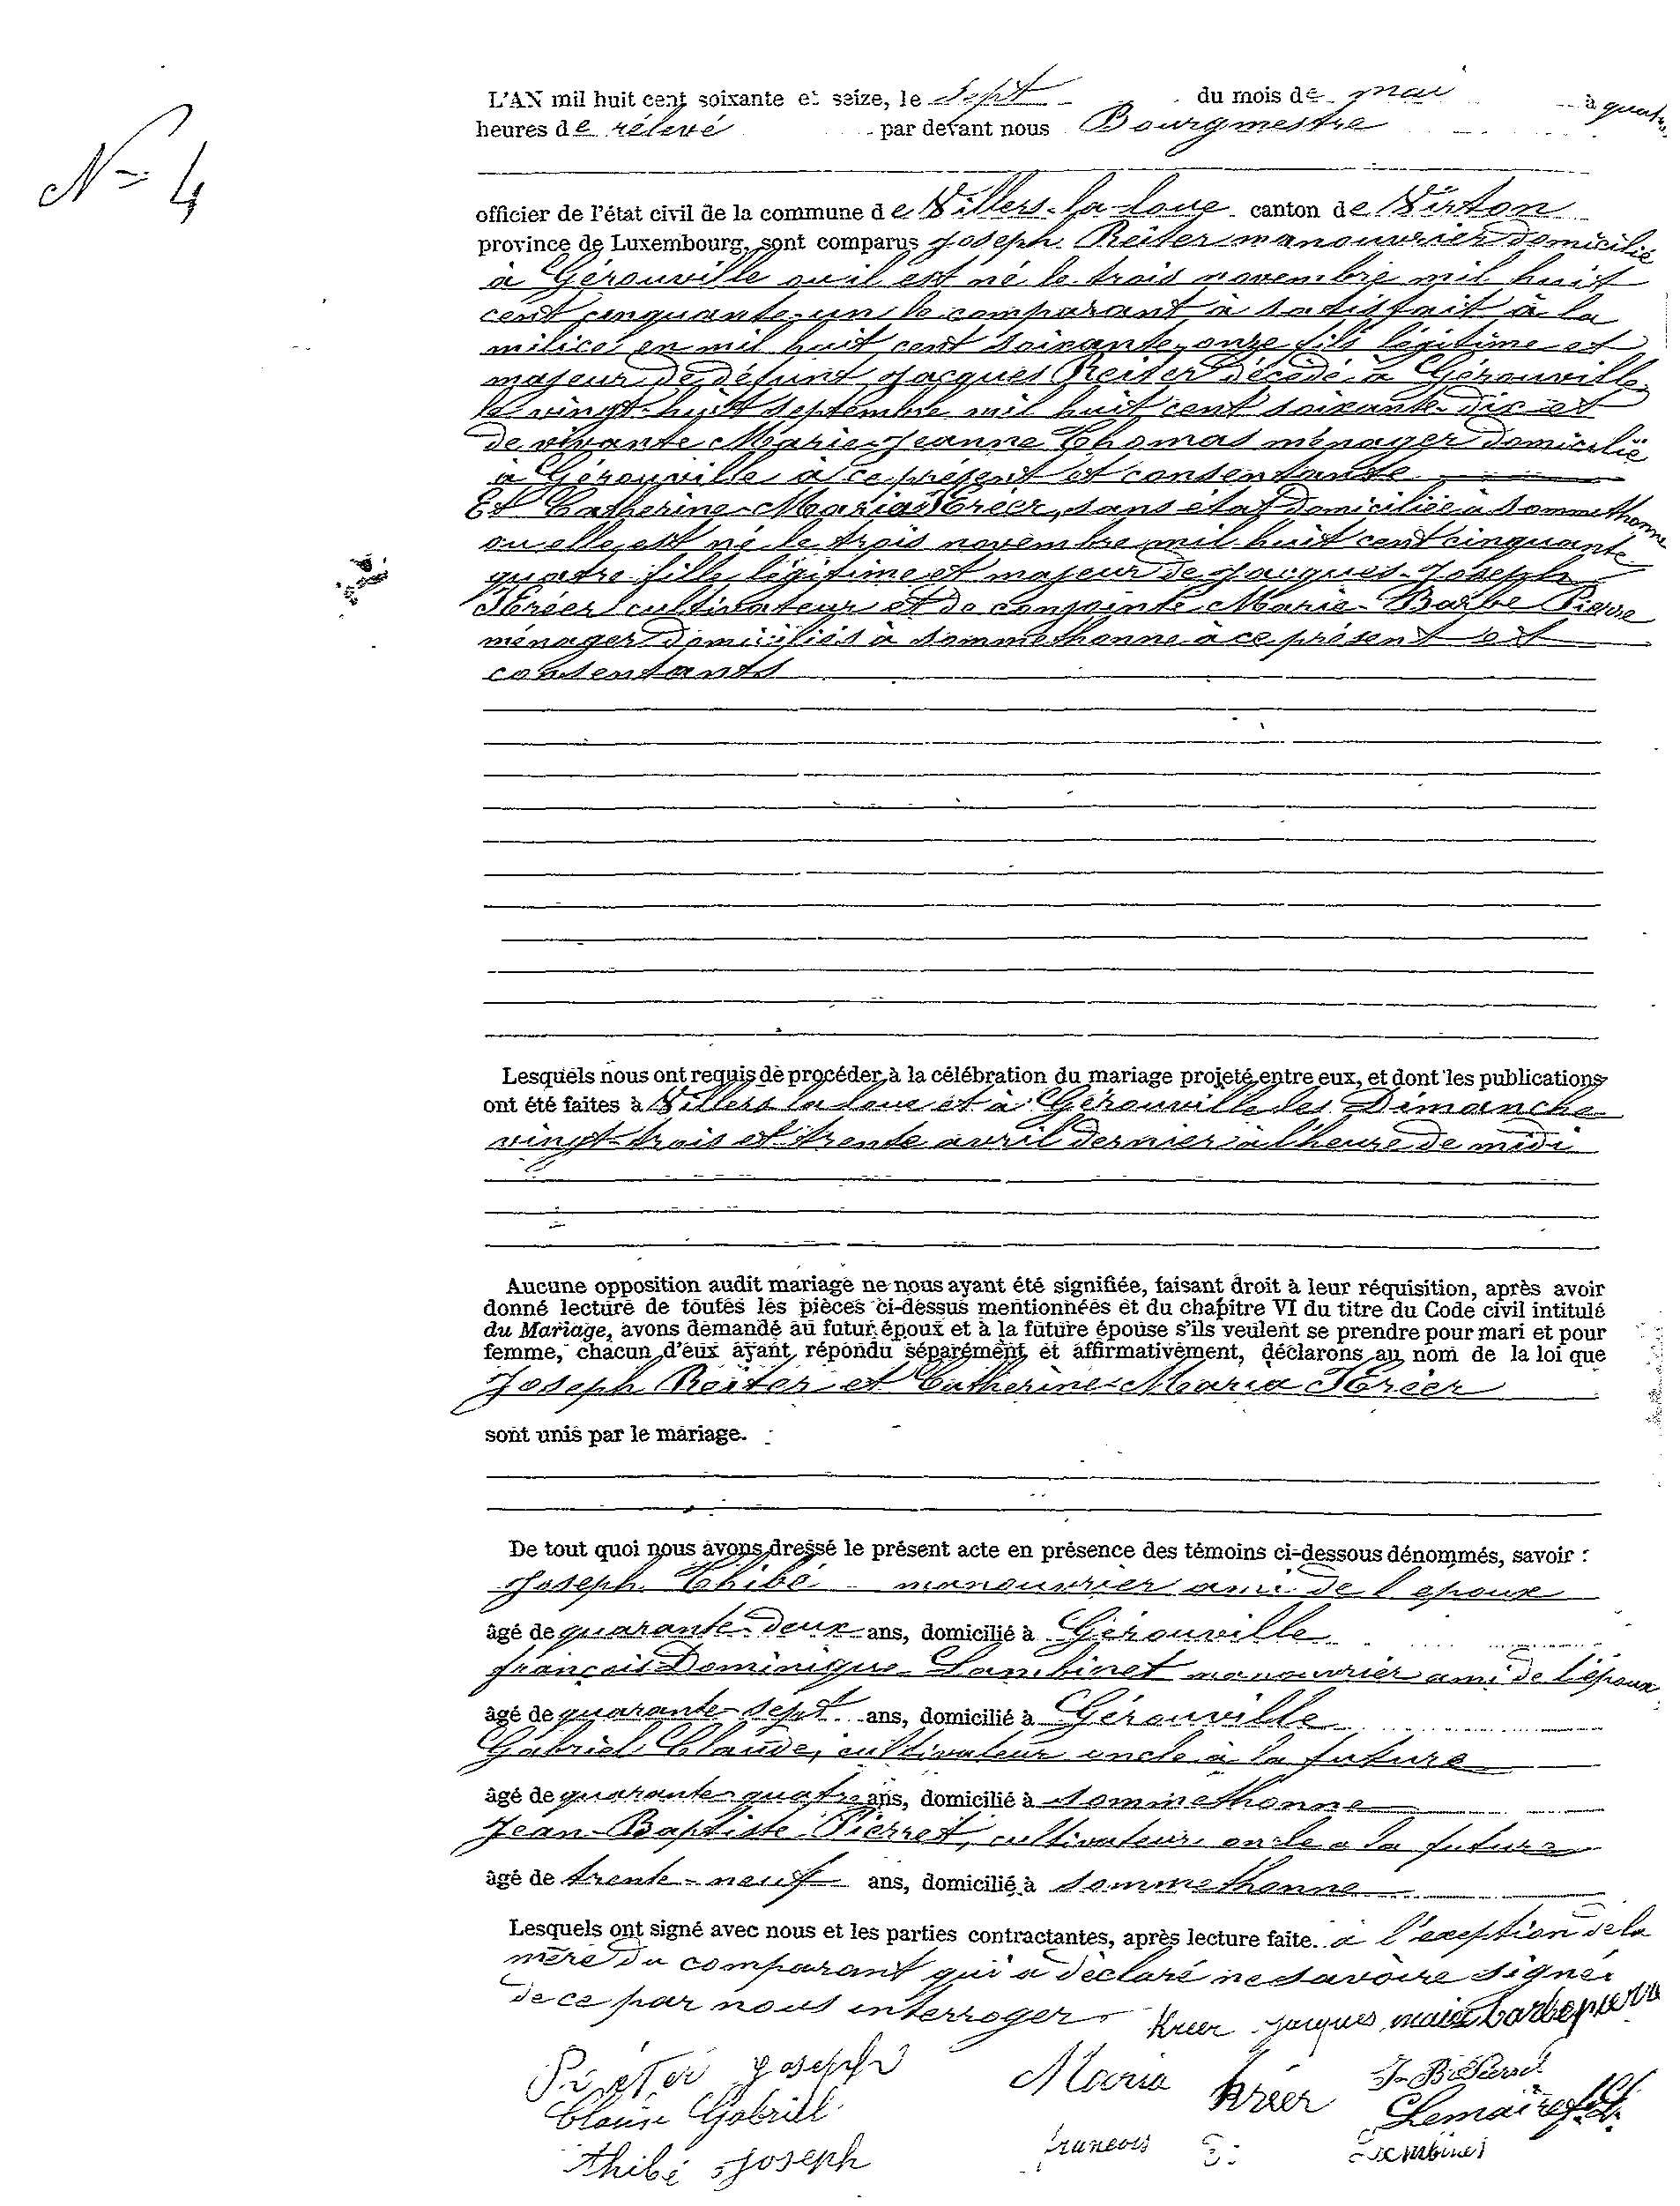 N= 4
L'AN mil huit cent soixante et seize, le sept du mois de mai à quatre
heures de rélevé par devant nous Bourgmestre
officier de l'état civil de la commune de Villers-la-loue canton de Virton
province de Luxembourg, sont comparus Joseph Reiter manouvrier domicilié
à Gérouville ou il est né le trois novembre mil huit
cent cinquante-un le comparant à satisfait à la
milice en mil huit cent soixante-onze fils légitime et
majeur de défunt Jacques Reiter décédé à Gérouville
le vingt-huit septembre mil huit cent soixante-dix et
de vivante Marie-Jeanne Thomas ménager domicilié
à Gérouville à ce présent et consentante
Et Catherine-Maria Kréer, sans état domiciliée à Sommethonne
ou elle est né le trois novembre mil huit cent cinquante
quatre fille légitime et majeur de Jacques-Joseph
Kréer cultivateur et de conjointe Marie-Barbe Pierre
ménager domiciliés à Sommethonne à ce présent et
consentants
Lesquels nous ont requis de procéder à la célébration du mariage projeté entre eux, et dont les publications
ont été faites à Villers la loue et à Gérouville les Dimanche
vingt-trois et trente avril dernier à l'heure de midi
Aucune opposition audit mariage ne nous ayant été signifiée, faisant droit à leur réquisition, après avoir
donné lecture de toutes les pièces ci-dessus mentionnées et du chapitre VI du titre du Code civil intitulé
du Mariage, avons demandé au futur époux et à la future épouse s'ils veulent se prendre pour mari et pour
femme, chacun d'eux ayant répondu séparément et affirmativement, déclarons au nom de la loi que
Joseph Reiter et Catherine-Maria Kréer
sont unis par le mariage.
De tout quoi nous avons dressé le présent acte en présence des témoins ci-dessous dénommés, savoir :
Joseph Thibé manouvrier ami de l epoux
âgé de quarante-deux ans, domicilié à Gérouville
françois Dominique Lambinet manouvrier ami de l'époux
âgé de quarante-sept ans, domicilié à Gérouville
Gabriel Claude, cultivateur oncle à la future
âgé de quarante-quatre ans, domicilié à Sommethonne
Jean-Baptiste Pierret, cultivateur oncle a la future
âgé de trente-neuf ans, domicilié à Sommethonne
Lesquels ont signé avec nous et les parties contractantes, après lecture faite. a l'exeption de la
mère du comparant qui à déclaré ne savoire signer
de ce par nous interroger.
Kreer Jacques marie barbe pierre
Joseph Maria Kréer J-B Pierret
Claude Gabriel Lemaire
Thibé Joseph francois D: Lambinet